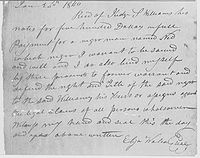 Jan 12th 1840
Recd of Judge S. Williams his
notes for five hundred Dollars in full
Payment for a negro man named Ned
which negro I warrant to be sound
and well and I do also bind myself
by these presents to forever warrant and
defend the right and Title of the said negro
to the said Williams his heirs or assigns against
the legal claims of all persons whatsoever
Witness my hand and seal this the day
and year above written
Eliza Wallace